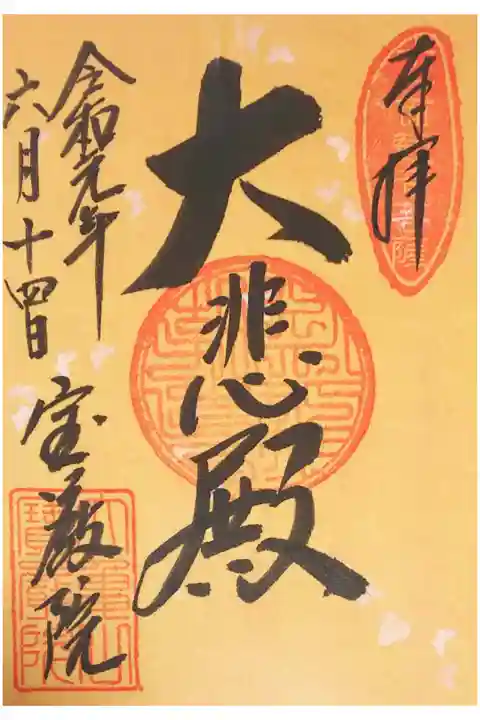 奉拝
大悲殿
令和元年
六月十四日
宝厳院